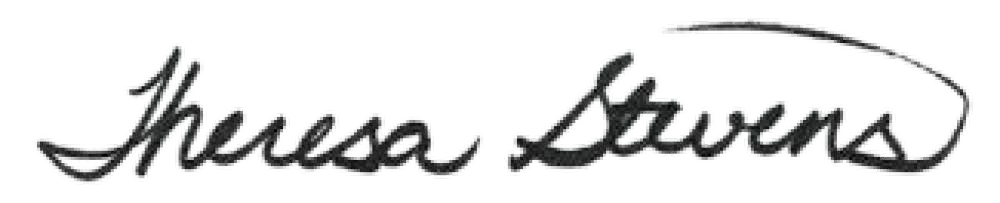 Theresa Stevens